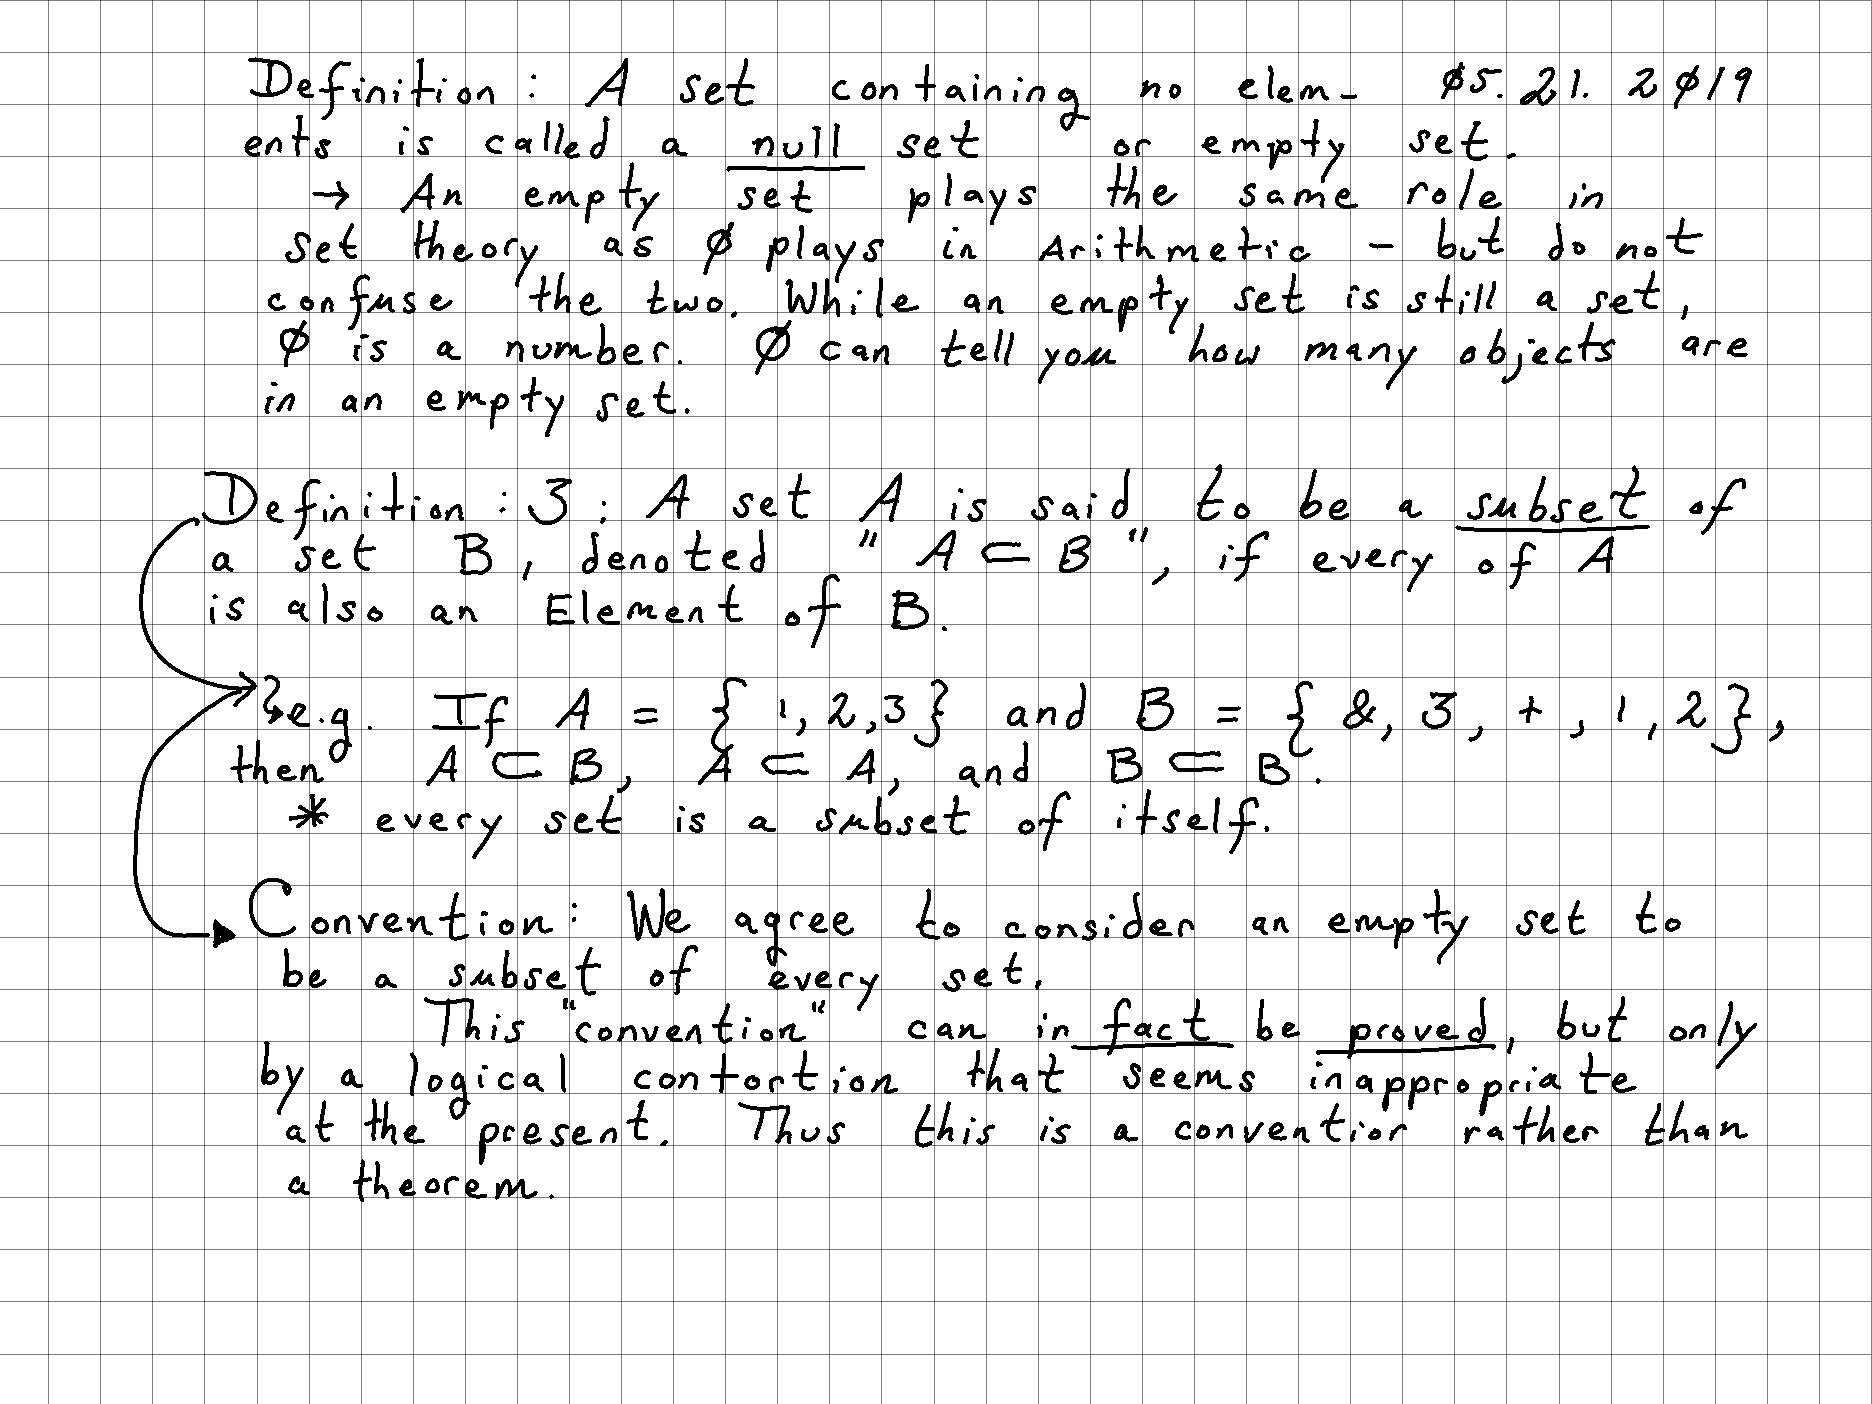 Definition: A set containing no elem- ∅5.21.2∅19
ents is called a null set or empty set.
→ An empty set plays the same role in
set theory as ∅ plays in Arithmetic - but do not
confuse the two. While an empty set is still a set,
∅ is a number. ∅ can tell you how many objects are
in an empty set.
Definition: 3: A set A is said to be a subset of
a set B, denoted "A ⊂ B", if every of A
is also an Element of B.
e.g. If A = { 1,2,3} and B = { &, 3, +, 1, 2},
then A ⊂ B, A ⊂ A, and B ⊂ B.
* every set is a subset of itself.
Convention: We agree to consider an empty set to
be a subset of every set.
This "convention" can in fact be proved, but only
by a logical contortion that seems inappropriate
at the present. Thus this is a convention rather than
a theorem.